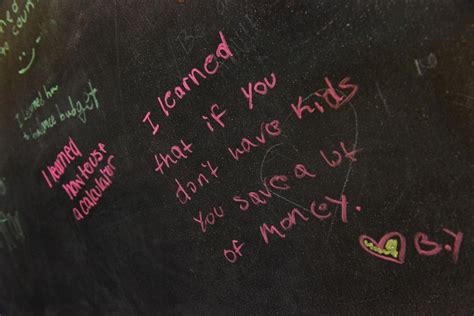 I learned
that if you
don't have kids
you save a lot
of money.
B.Y
I learned
how to use
a calculator
I learned how
to balance budget